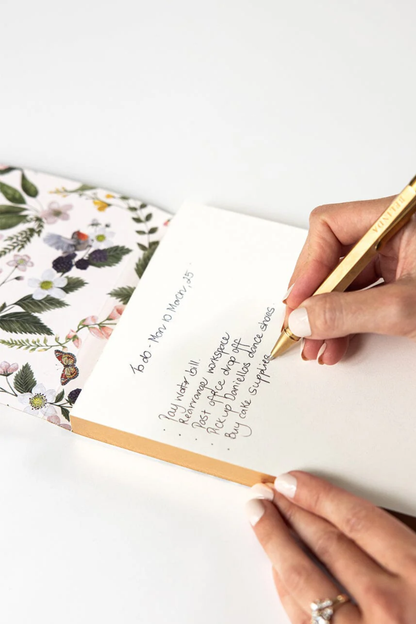 To do - Mon 10 March, 25
· Pay water bill.
· Rearrange workspace
· Post office drop off
· Pick up Daniella's dance shoes
· Buy cake supplies